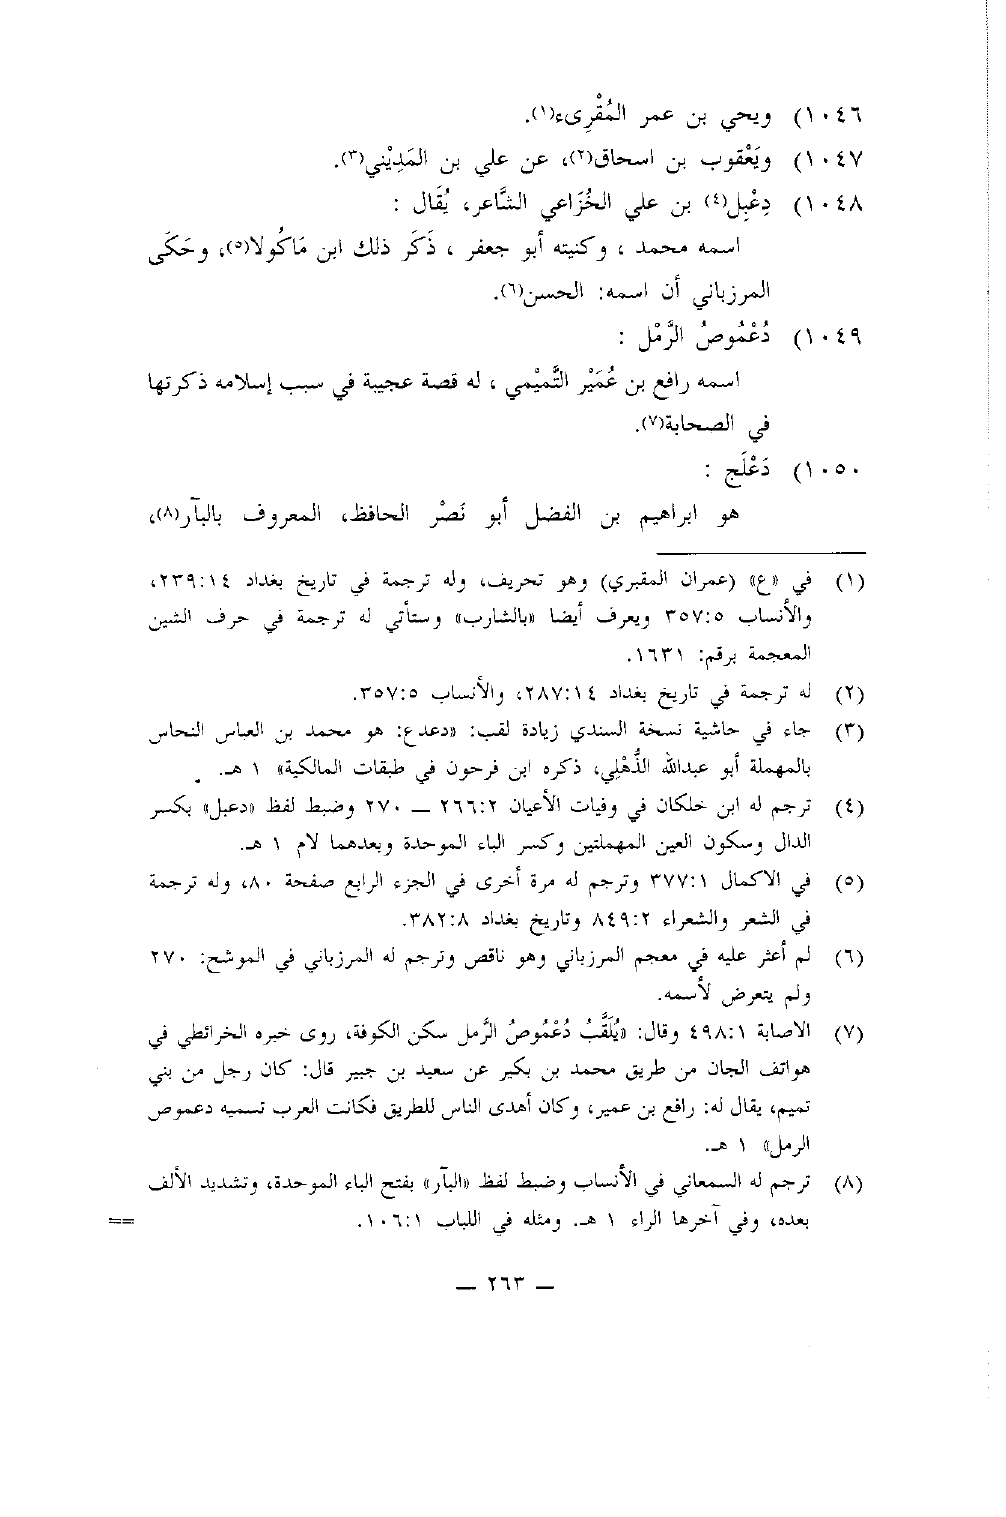 ١٠٤٦) ويحي بن عمر المُقْرِىء(١).
١٠٤٧) ويَعْقوب بن اسحاق(٢)، عن علي بن المَدِيْني(٣).
١٠٤٨) دِعْبِل(٤) بن علي الخُزَاعي الشَّاعر، يُقَال :
اسمه محمد ، وكنيته أبو جعفر ، ذَكَر ذلك ابن مَاكُولا(٥)، وحَكَى
المرزباني أن اسمه: الحسن(٦).
١٠٤٩) دُعْمُوصُ الرَّمْل :
اسمه رافع بن عُمَيْر التَّمِيْمي ، له قصة عجيبة في سبب إسلامه ذكرتها
في الصحابة(٧).
١٠٥٠) دَعْلَج :
هو ابراهيم بن الفضل أبو نَصْر الحافظ، المعروف بالبآر(٨)،
(١) في «ع» (عمران المقبري) وهو تحريف، وله ترجمة في تاريخ بغداد ٢٣٩:١٤،
والأنساب ٣٥٧:٥ ويعرف أيضا «بالشارب» وستأتي له ترجمة في حرف الشين
المعجمة برقم: ١٦٣١.
(٢) له ترجمة في تاريخ بغداد ٢٨٧:١٤، والأنساب ٣٥٧:٥.
(٣) جاء في حاشية نسخة السندي زيادة لقب: «دعدع: هو محمد بن العباس النحاس
بالمهملة أبو عبدالله الذُّهْلِي، ذكره ابن فرحون في طبقات المالكية» ١ هـ.
(٤) ترجم له ابن خلكان في وفيات الأعيان ٢٦٦:٢ ــ ٢٧٠ وضبط لفظ «دعبل» بكسر
الدال وسكون العين المهملتين وكسر الباء الموحدة وبعدهما لام ١ هـ.
(٥) في الاكمال ٣٧٧:١ وترجم له مرة أخرى في الجزء الرابع صفحة ٨٠، وله ترجمة
في الشعر والشعراء ٨٤٩:٢ وتاريخ بغداد ٣٨٢:٨.
(٦) لم أعثر عليه في معجم المرزباني وهو ناقص وترجم له المرزباني في الموشح: ٢٧٠
ولم يتعرض لأسمه.
(٧) الاصابة ٤٩٨:١ وقال: «يُلَقَّبُ دُعْمُوصُ الرَّمل سكن الكوفة، روى خبره الخرائطي في
هواتف الجان من طريق محمد بن بكير عن سعيد بن جبير قال: كان رجل من بني
تميم، يقال له: رافع بن عمير، وكان أهدى الناس للطريق فكانت العرب تسميه دعموص
الرمل» ١ هـ.
(٨) ترجم له السمعاني في الأنساب وضبط لفظ «البآر» بفتح الباء الموحدة، وتشديد الألف
بعده، وفي آخرها الراء ١ هـ. ومثله في اللباب ١٠٦:١. ==
ــ ٢٦٣ ــ